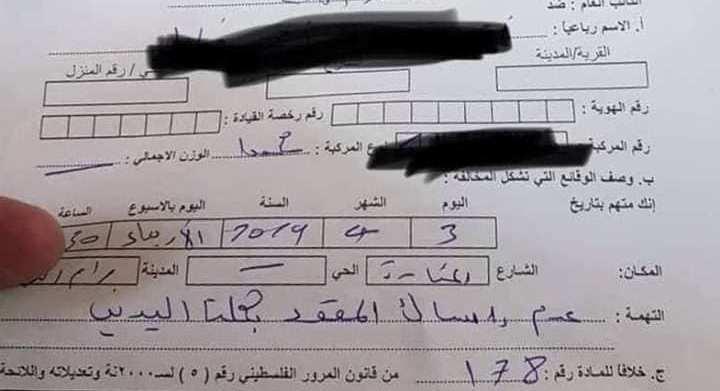 النائب العام : ضد
أ. الاسم رباعيا :
القرية/المدينة
ي / رقم المنزل
رقم الهوية : رقم رخصة القيادة :
رقم المركبة نوع المركبة : الوزن الاجمالي :
ب. وصف الوقائع التي تشكل المخالفة :
إنك متهم بتاريخ اليوم الشهر السنة اليوم بالاسبوع الساعة
3 4 2019 الاربعاء
المكان: الشارع الحي المدينة
التهمة : عدم امساك المقود بكلتا اليدين
ج. خلافا للمادة رقم : 178 من قانون المرور الفلسطيني رقم (٥) لسـ٢٠٠٠ـنة وتعديلاته واللائحة